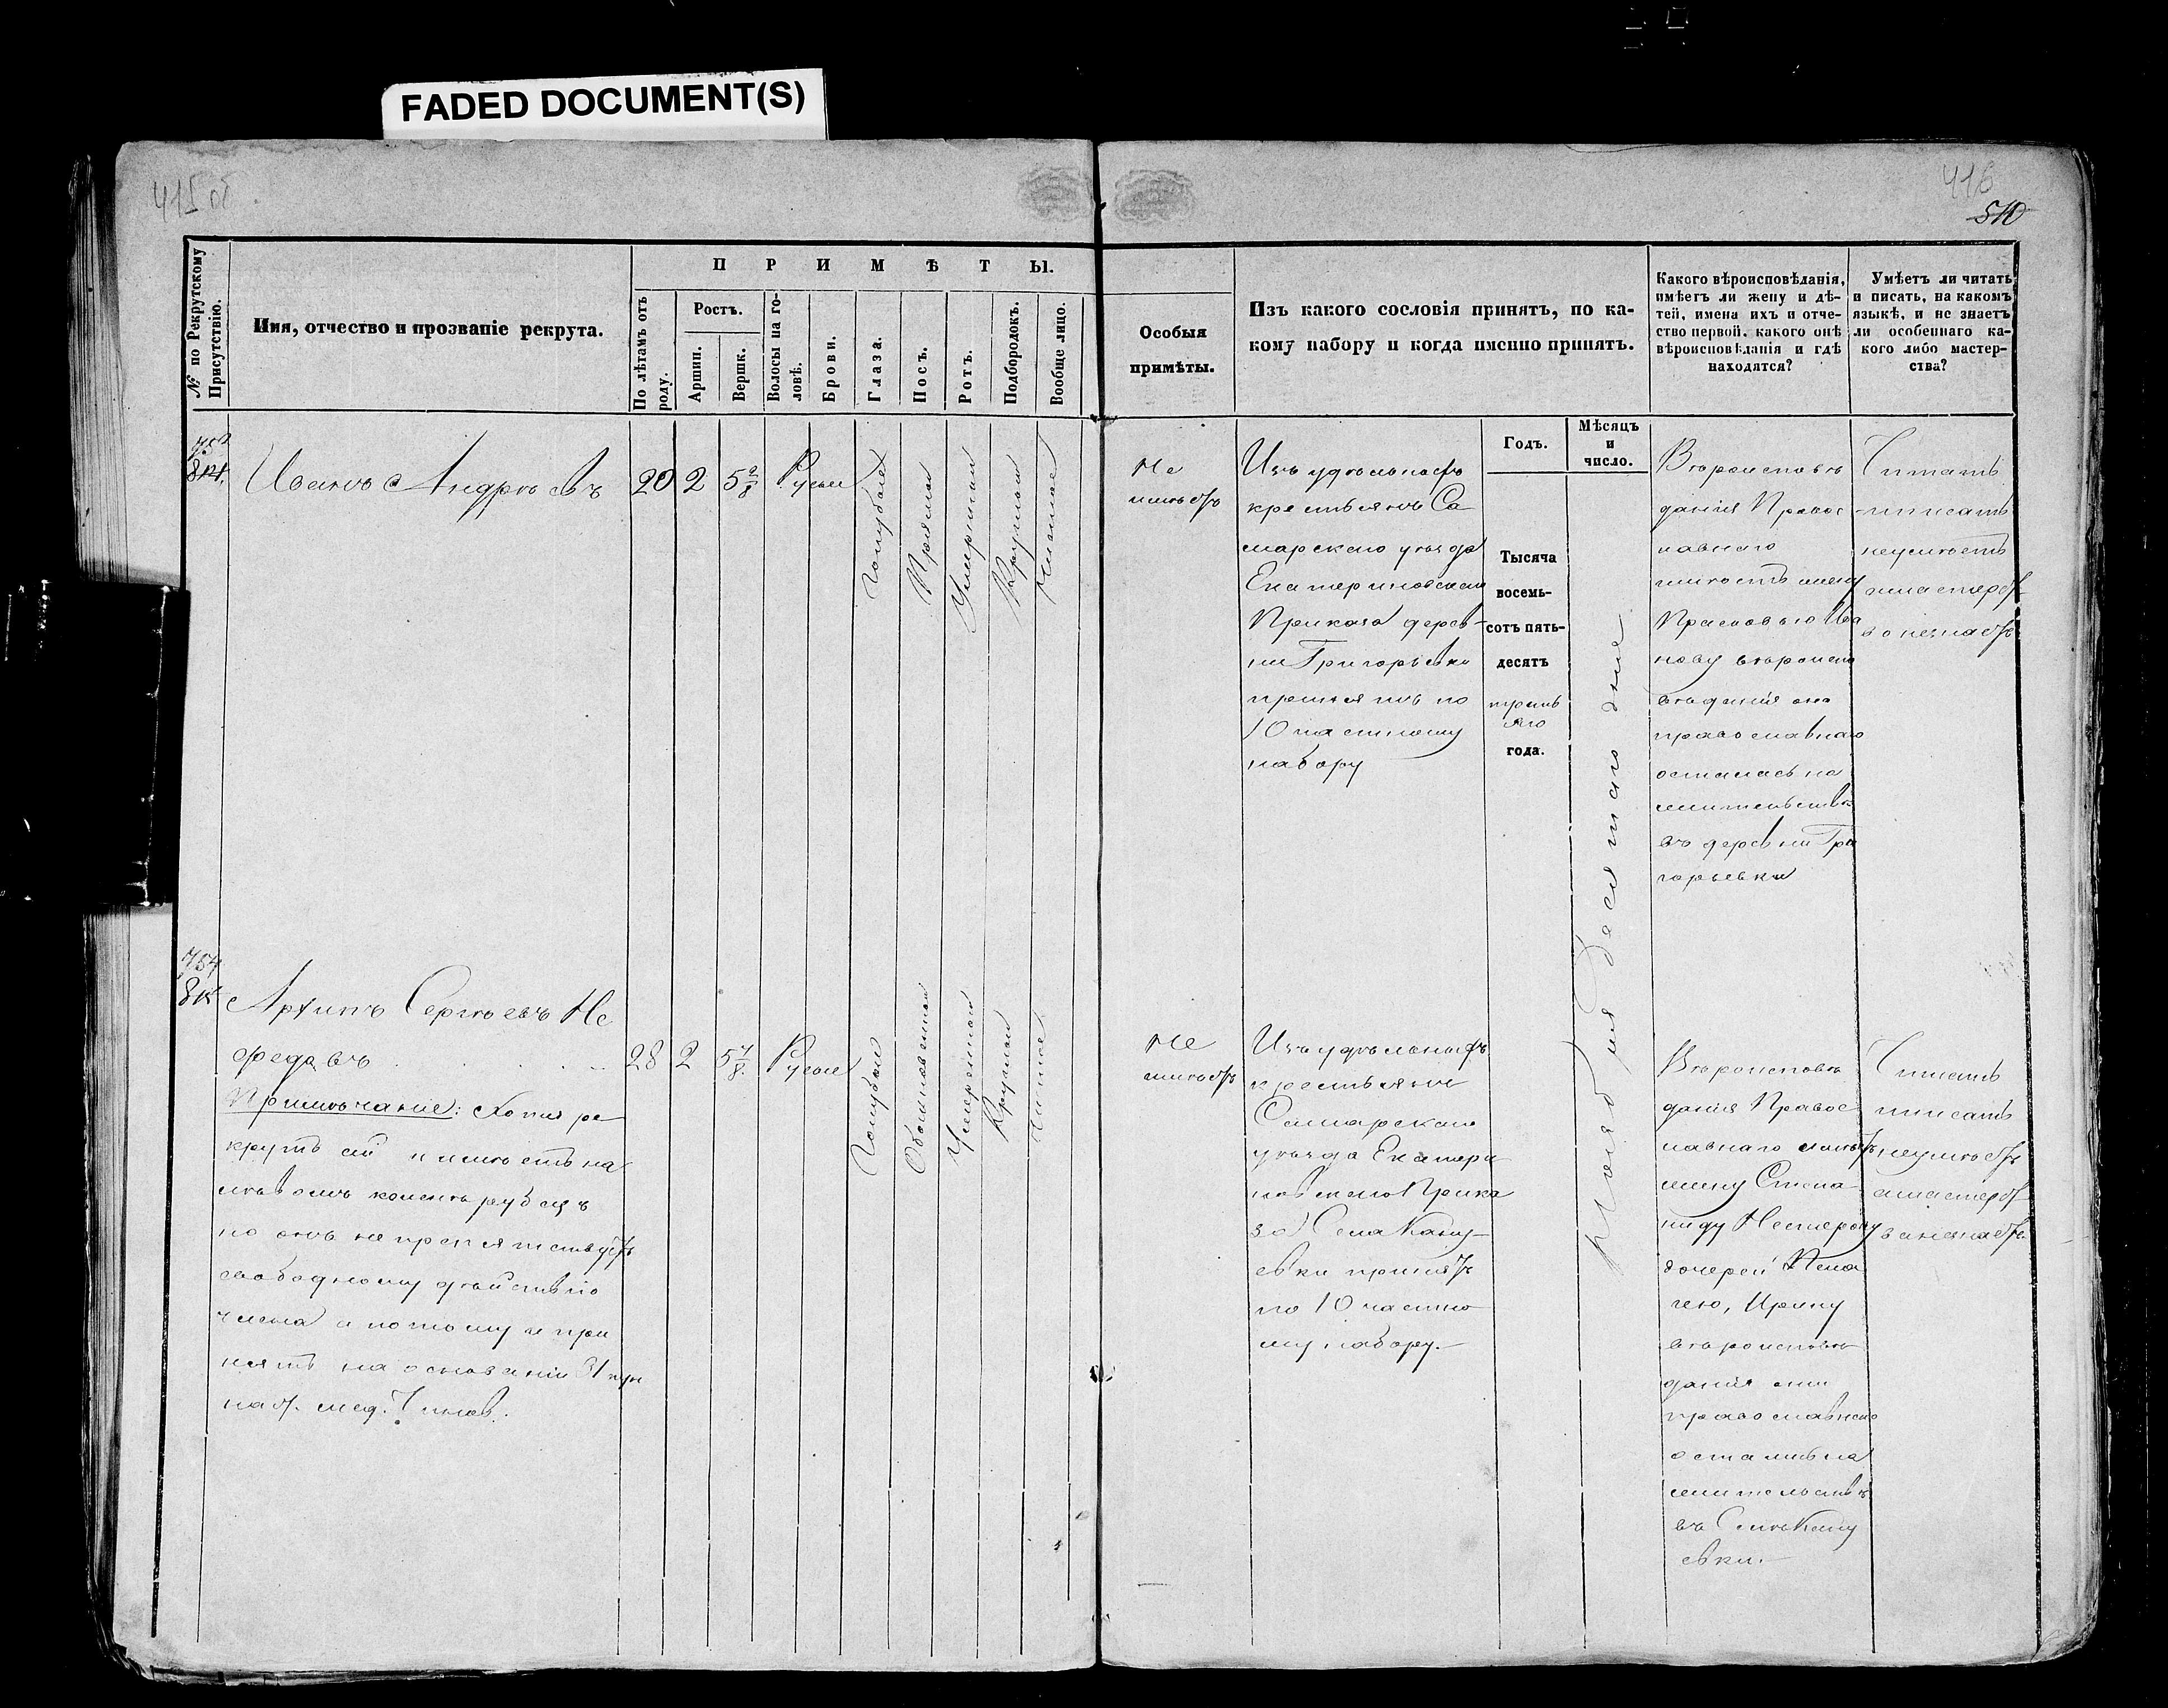 FADED DOCUMENT(S)
415 об
416
510
№ по Рекрутскому Присутствію.
Имя, отчество и прозваніе рекрута.
ПРИМѢТЫ.
По лѣтамъ отъ роду.
Ростъ.
Аршин.
Вершк.
Волосы на головѣ.
Брови.
Глаза.
Носъ.
Ротъ.
Подбородокъ.
Вообще лицо.
Особыя
примѣты.
Изъ какого сословія принятъ, по ка-
кому набору и когда именно принятъ.
Какого вѣроисповѣданія,
имѣетъ ли жену и дѣ-
тей, имена ихъ и отче-
ство первой, какого онѣ
вѣроисповѣданія и гдѣ
находятся?
Умѣетъ ли читать
и писать, на какомъ
языкѣ, и не знаетъ
ли особеннаго ка-
кого либо мастер-
ства?
Годъ.
Мѣсяцъ
и
число.
753
Иванъ Андреевъ
20 2 5 2/8 Русые
Голубые
Прямой
Умеренной
Круглой
Чистое
Не
имеетъ
Изъ удельныхъ
крестьянъ Са
марскаго уезда
Екатериновскаго
Приказа дерев-
ни Григорьевки
принятъ по
10 частному
набору
Тысяча
восемь-
сотъ пять-
десятъ
треть
яго
года.
Ноября десятаго дня
Вероиспове
дания Правос
лавнаго
имеетъ жену
Прасковью Ива
нову вероиспо
ведания она
православнаго
осталась на
жительстве
въ деревни Гри
горьевки
Читать
писать
неумеетъ
мастерст
ва незнаетъ
754
Архипъ Сергеевъ Не
федовъ
28 2 5 4/8 Русые
Голубые
Обыкновенной
Умеренной
Круглой
Чистое
Примечание: Хотя ре
крутъ сей и имеетъ на
левомъ колене рубецъ
но онъ не препятствуетъ
свободному действию
члена а потому и при
нятъ на основании 31 пун
наст. мед. Чинов.
Не
имеетъ
Изъ удельныхъ
крестьянъ
Самарскаго
уезда Екатери
новскаго Прика
за Села Кану-
евки принятъ
по 10 частно
му набору.
Вероиспове
дания Правос
лавнаго имеетъ
жену Степа
ниду Нестерову
дочерей Пела
гею, Ирину
вероиспове
дания они
православнаго
остались на
жительстве
въ Селе Кану
евки.
Читать
писать
неумеетъ
мастерст
ва незнаетъ